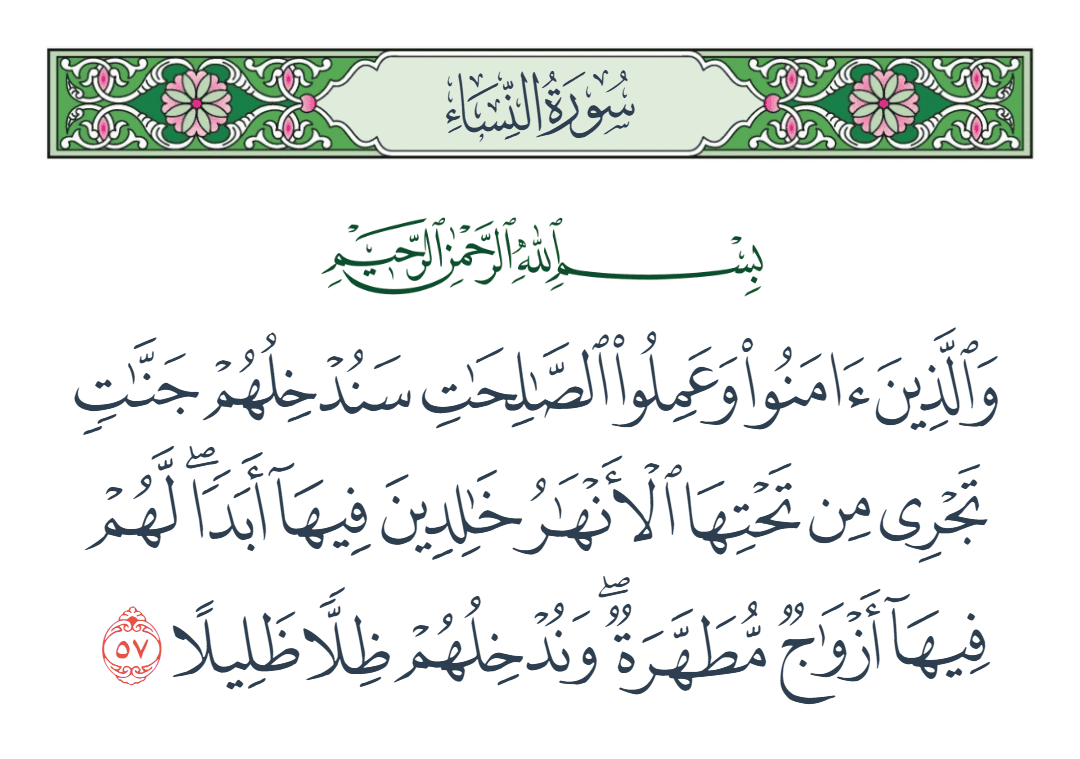 سُورَةُ النِّسَاءِ
بِسْمِ ٱللَّهِ ٱلرَّحْمَٰنِ ٱلرَّحِيمِ
وَٱلَّذِينَ ءَامَنُوا۟ وَعَمِلُوا۟ ٱلصَّـٰلِحَـٰتِ سَنُدْخِلُهُمْ جَنَّـٰتٍ
تَجْرِى مِن تَحْتِهَا ٱلْأَنْهَـٰرُ خَـٰلِدِينَ فِيهَآ أَبَدًا ۖ لَّهُمْ
فِيهَآ أَزْوَٰجٌ مُّطَهَّرَةٌ ۖ وَنُدْخِلُهُمْ ظِلًّا ظَلِيلًا ٥٧